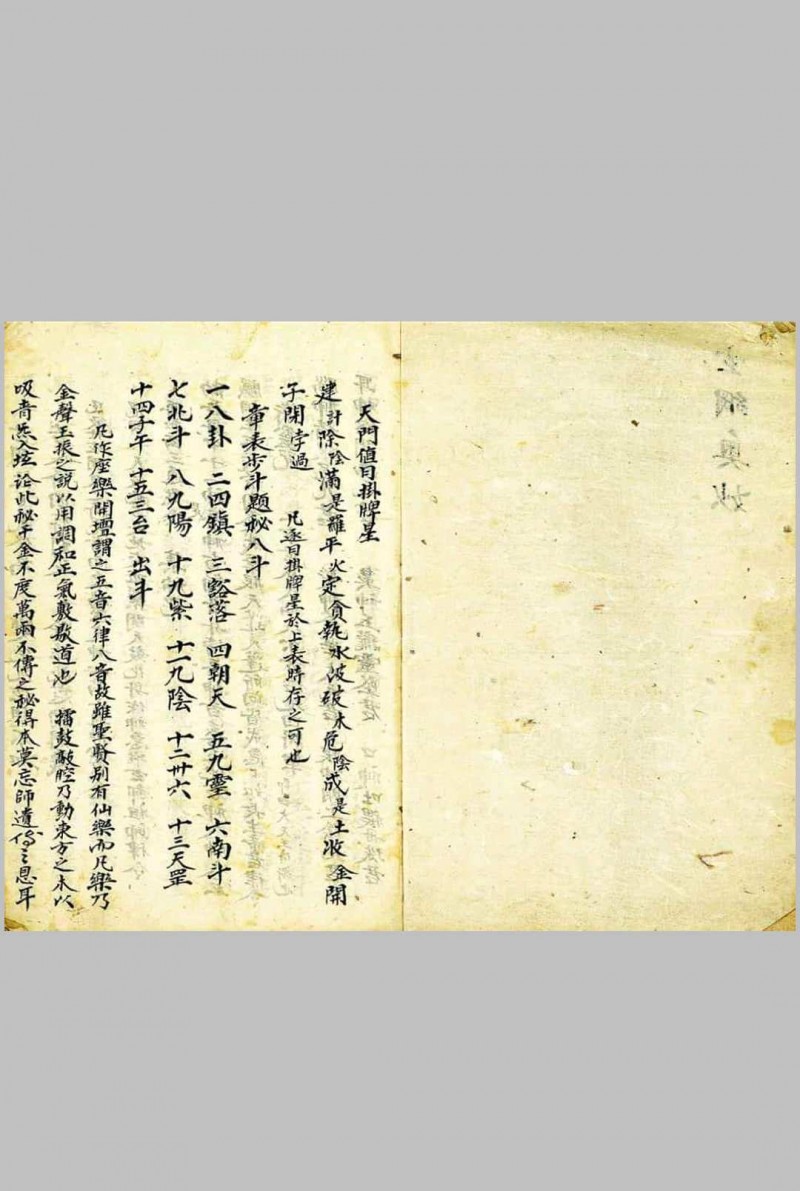 天門值日掛牌星
建計除陰滿是羅平火定貪執水破木危陰成是土收金開
子閉孛過　凡逐日掛牌星於上表時存之可也
章表步斗題秘八斗
一八卦　二四鎮　三豁落　四朝天　五九靈　六南斗
七北斗　八九陽　十九紫　十一九陰　十二卅六　十三天罡
十四子午　十五三台　出斗
凡作座樂開壇謂之五音六律八音故雖聖賢別有仙樂而凡樂乃
金聲玉振之說以用調和正氣敷歇道也　擂鼓敲腔乃動東方之木以
吸青炁入壇治此秘千金不度萬兩不傳之秘得本莫忘師遺傳之恩耳